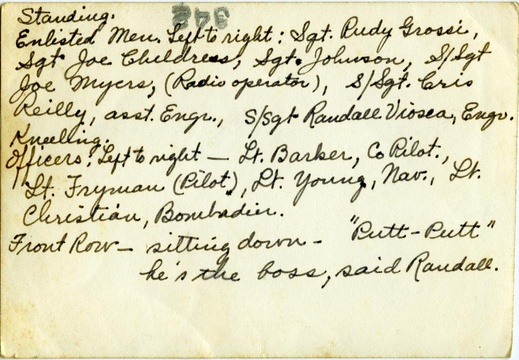 Standing.
342
Enlisted Men. Left to right: Sgt. Rudy Grossi,
Sgt Joe Childress, Sgt. Johnson, S/Sgt
Joe Myers, (Radio operator), S/Sgt. Cris
Reilly, asst. Engr., S/Sgt Randall Viosca, Engr.
Kneeling.
Officers: Left to right — Lt. Barker, Co Pilot.,
Lt. Fryman (Pilot), Lt. Young, Nav., Lt.
Christian, Bombadier.
Front Row — sitting down - "Putt-Putt"
he's the boss, said Randall.